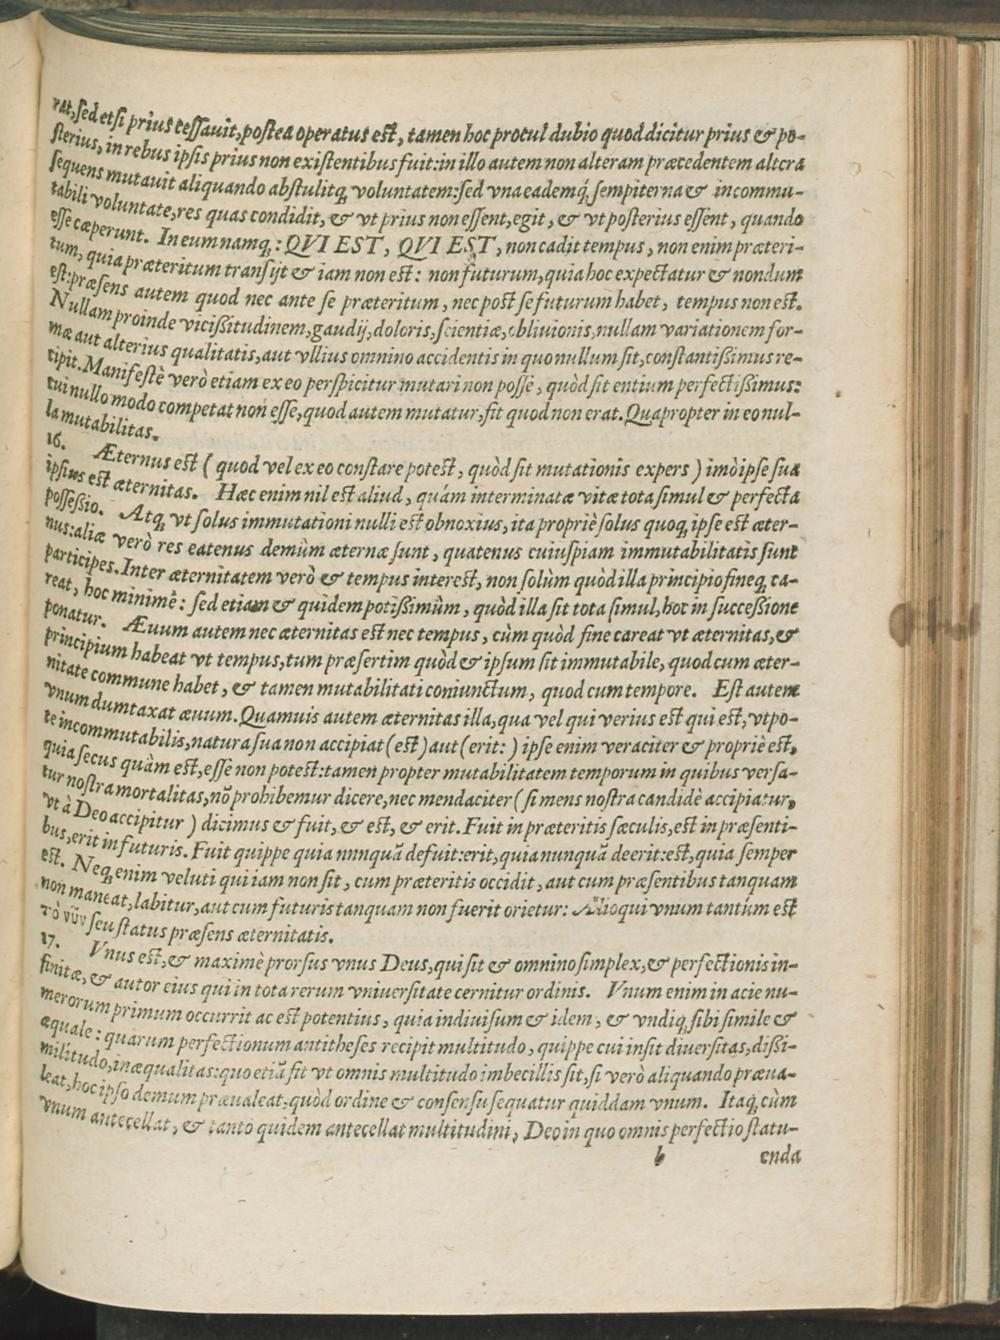 rat, sed etsi prius cessauit, postea operatus est, tamen hoc procul dubio quod dicitur prius & po-
sterius, in rebus ipsis prius non existentibus fuit: in illo autem non alteram præcedentem altera
sequens mutauit aliquando abstulitq; voluntatem: sed vna eademq́; sempiterna & incommu-
tabili voluntate, res quas condidit, & vt prius non essent, egit, & vt posterius essent, quando
esse cæperunt. In eum namq; : QVI EST, QVI EST, non cadit tempus, non enim præteri-
tum, quia præteritum transijt & iam non est: non futurum, quia hoc expectatur & nondum
est: præsens autem quod nec ante se præteritum, nec post se futurum habet, tempus non est.
Nullam proinde vicißitudinem, gaudij, doloris, scientiæ, obliuionis, nullam variationem for-
mæ aut alterius qualitatis, aut vllius omnino accidentis in quo nullum sit, constantißimus re-
cipit. Manifestè verò etiam ex eo perspicitur mutari non posse, quòd sit entium perfectißimus:
cui nullo modo competat non esse, quod autem mutatur, fit quod non erat. Quapropter in eo nul-
la mutabilitas.
16. Æternus est ( quod vel ex eo constare potest, quòd sit mutationis expers ) imò ipse sua
ipsius est æternitas. Hæc enim nil est aliud, quám interminatæ vitæ tota simul & perfecta
possessio. Atq; vt solus immutationi nulli est obnoxius, ita propriè solus quoq; ipse est æter-
nus: aliæ verò res eatenus demùm æternæ sunt, quatenus cuiuspiam immutabilitatis sunt
participes. Inter æternitatem verò & tempus interest, non solùm quòd illa principio fineq; ca-
reat, hoc minimè: sed etiam & quidem potißimùm, quòd illa sit tota simul, hoc in successione
ponatur. Æuum autem nec æternitas est nec tempus, cùm quòd fine careat vt æternitas, &
principium habeat vt tempus, tum præsertim quòd & ipsum sit immutabile, quod cum æter-
nitate commune habet, & tamen mutabilitati coniunctum, quod cum tempore. Est autem
vnum dumtaxat æuum. Quamuis autem æternitas illa, qua vel qui verius est qui est, vt po-
te incommutabilis, natura sua non accipiat (est) aut (erit: ) ipse enim veraciter & propriè est,
quia secus quàm est, esse non potest: tamen propter mutabilitatem temporum in quibus versa-
tur nostra mortalitas, nõ prohibemur dicere, nec mendaciter ( si mens nostra candidè accipiatur,
vt à Deo accipitur ) dicimus & fuit, & est, & erit. Fuit in præteritis sæculis, est in præsenti-
bus, erit in futuris. Fuit quippe quia nunquã defuit: erit, quia nunquã deerit: est, quia semper
est. Neq; enim veluti qui iam non sit, cum præteritis occidit, aut cum præsentibus tanquam
non maneat, labitur, aut cum futuris tanquam non fuerit orietur: Alioqui vnum tantúm est
τὸ νῦν seu status præsens æternitatis.
17. Vnus est, & maximè prorsus vnus Deus, qui sit & omnino simplex, & perfectionis in-
finitæ, & autor eius qui in tota rerum vniuersitate cernitur ordinis. Vnum enim in acie nu-
merorum primum occurrit ac est potentius, quia indiuisum & idem, & vndiq; sibi simile &
æquale: quarum perfectionum antitheses recipit multitudo, quippe cui insit diuersitas, dißi-
militudo, inæqualitas: quo etiã fit vt omnis multitudo imbecillis sit, si verò aliquando præua-
leat, hoc ipso demum præualeat, quòd ordine & consensu sequatur quiddam vnum. Itaq; cùm
vnum antecellat, & tanto quidem antecellat multitudini, Deo in quo omnis perfectio statu-
b enda